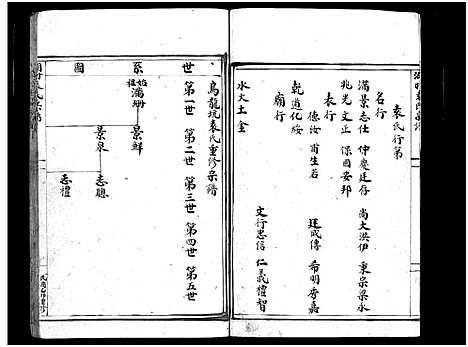 袁氏行第
名行
滿景志仕 仲慶廷存 尚大洪伊 秉宗梁永
兆光文正 保國安邦
表行
德汝甫生若 廷成傳 希明秀嘉
乾道化綏
廟行
文行忠信 仁義禮智
水火土金
烏龍坑袁氏重修宗譜
世系圖
第一世 第二世 第三世 第四世 第五世
始祖 滿珊
景鮮
景泉
志聰
志禮